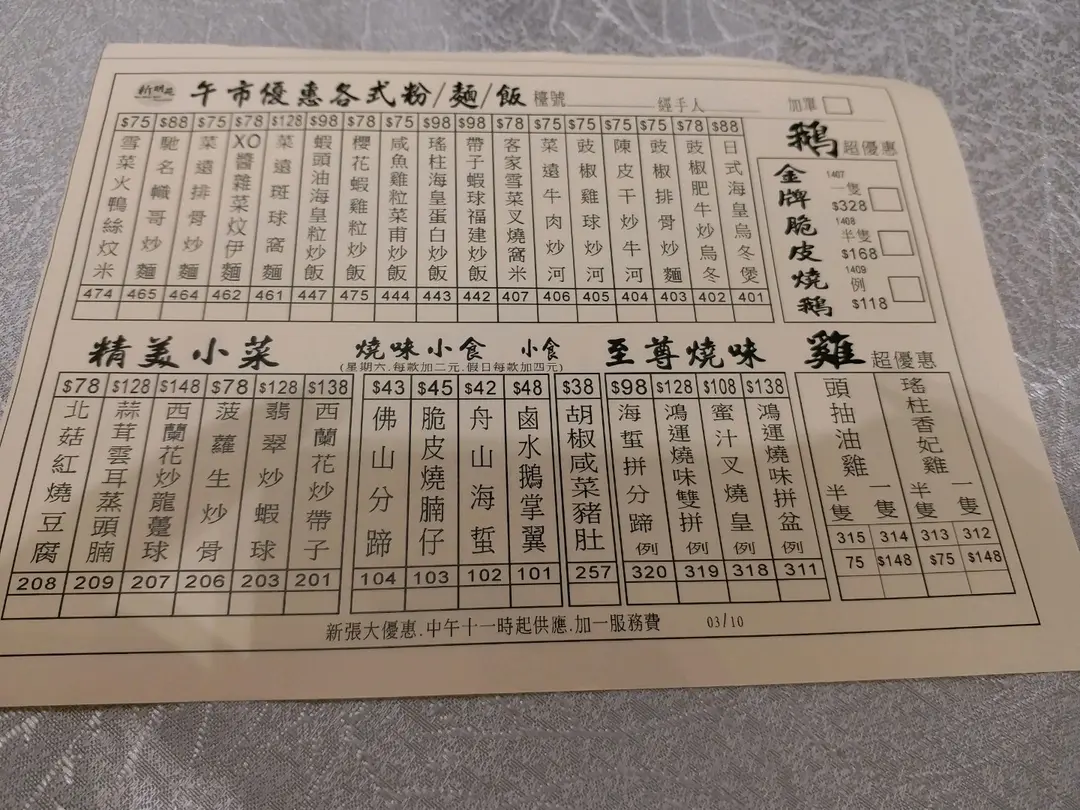 新明苑
午市優惠各式粉/麵/飯
檯號
經手人
加單
$88 日式海皇烏冬煲 401
$78 豉椒肥牛炒烏冬 402
$75 豉椒排骨炒麵 403
$75 陳皮干炒牛河 404
$75 豉椒雞球炒河 405
$75 菜遠牛肉炒河 406
$78 客家雪菜叉燒窩米 407
$98 帶子蝦球福建炒飯 442
$98 瑤柱海皇蛋白炒飯 443
$75 咸魚雞粒菜甫炒飯 444
$78 櫻花蝦雞粒炒飯 475
$98 蝦頭油海皇粒炒飯 447
$128 菜遠斑球窩麵 461
$78 XO醬雜菜炆伊麵 462
$75 菜遠排骨炒麵 464
$88 馳名幟哥炒麵 465
$75 雪菜火鴨絲炆米 474
鵝 超優惠
金牌脆皮燒鵝
1407 一隻 $328
1408 半隻 $168
1409 例 $118
雞 超優惠
瑤柱香妃雞
一隻 312 $148
半隻 313 $75
頭抽油雞
一隻 314 $148
半隻 315 75
至尊燒味
$138 鴻運燒味拼盆 例 311
$108 蜜汁叉燒皇 例 318
$128 鴻運燒味雙拼 例 319
$98 海蜇拼分蹄 例 320
燒味小食 小食
(星期六.每款加二元.假日每款加四元)
$38 胡椒咸菜豬肚 257
$48 鹵水鵝掌翼 101
$42 舟山海蜇 102
$45 脆皮燒腩仔 103
$43 佛山分蹄 104
精美小菜
$138 西蘭花炒帶子 201
$128 翡翠炒蝦球 203
$78 菠蘿生炒骨 206
$148 西蘭花炒龍躉球 207
$128 蒜茸雲耳蒸頭腩 209
$78 北菇紅燒豆腐 208
新張大優惠.中午十一時起供應.加一服務費
03/10